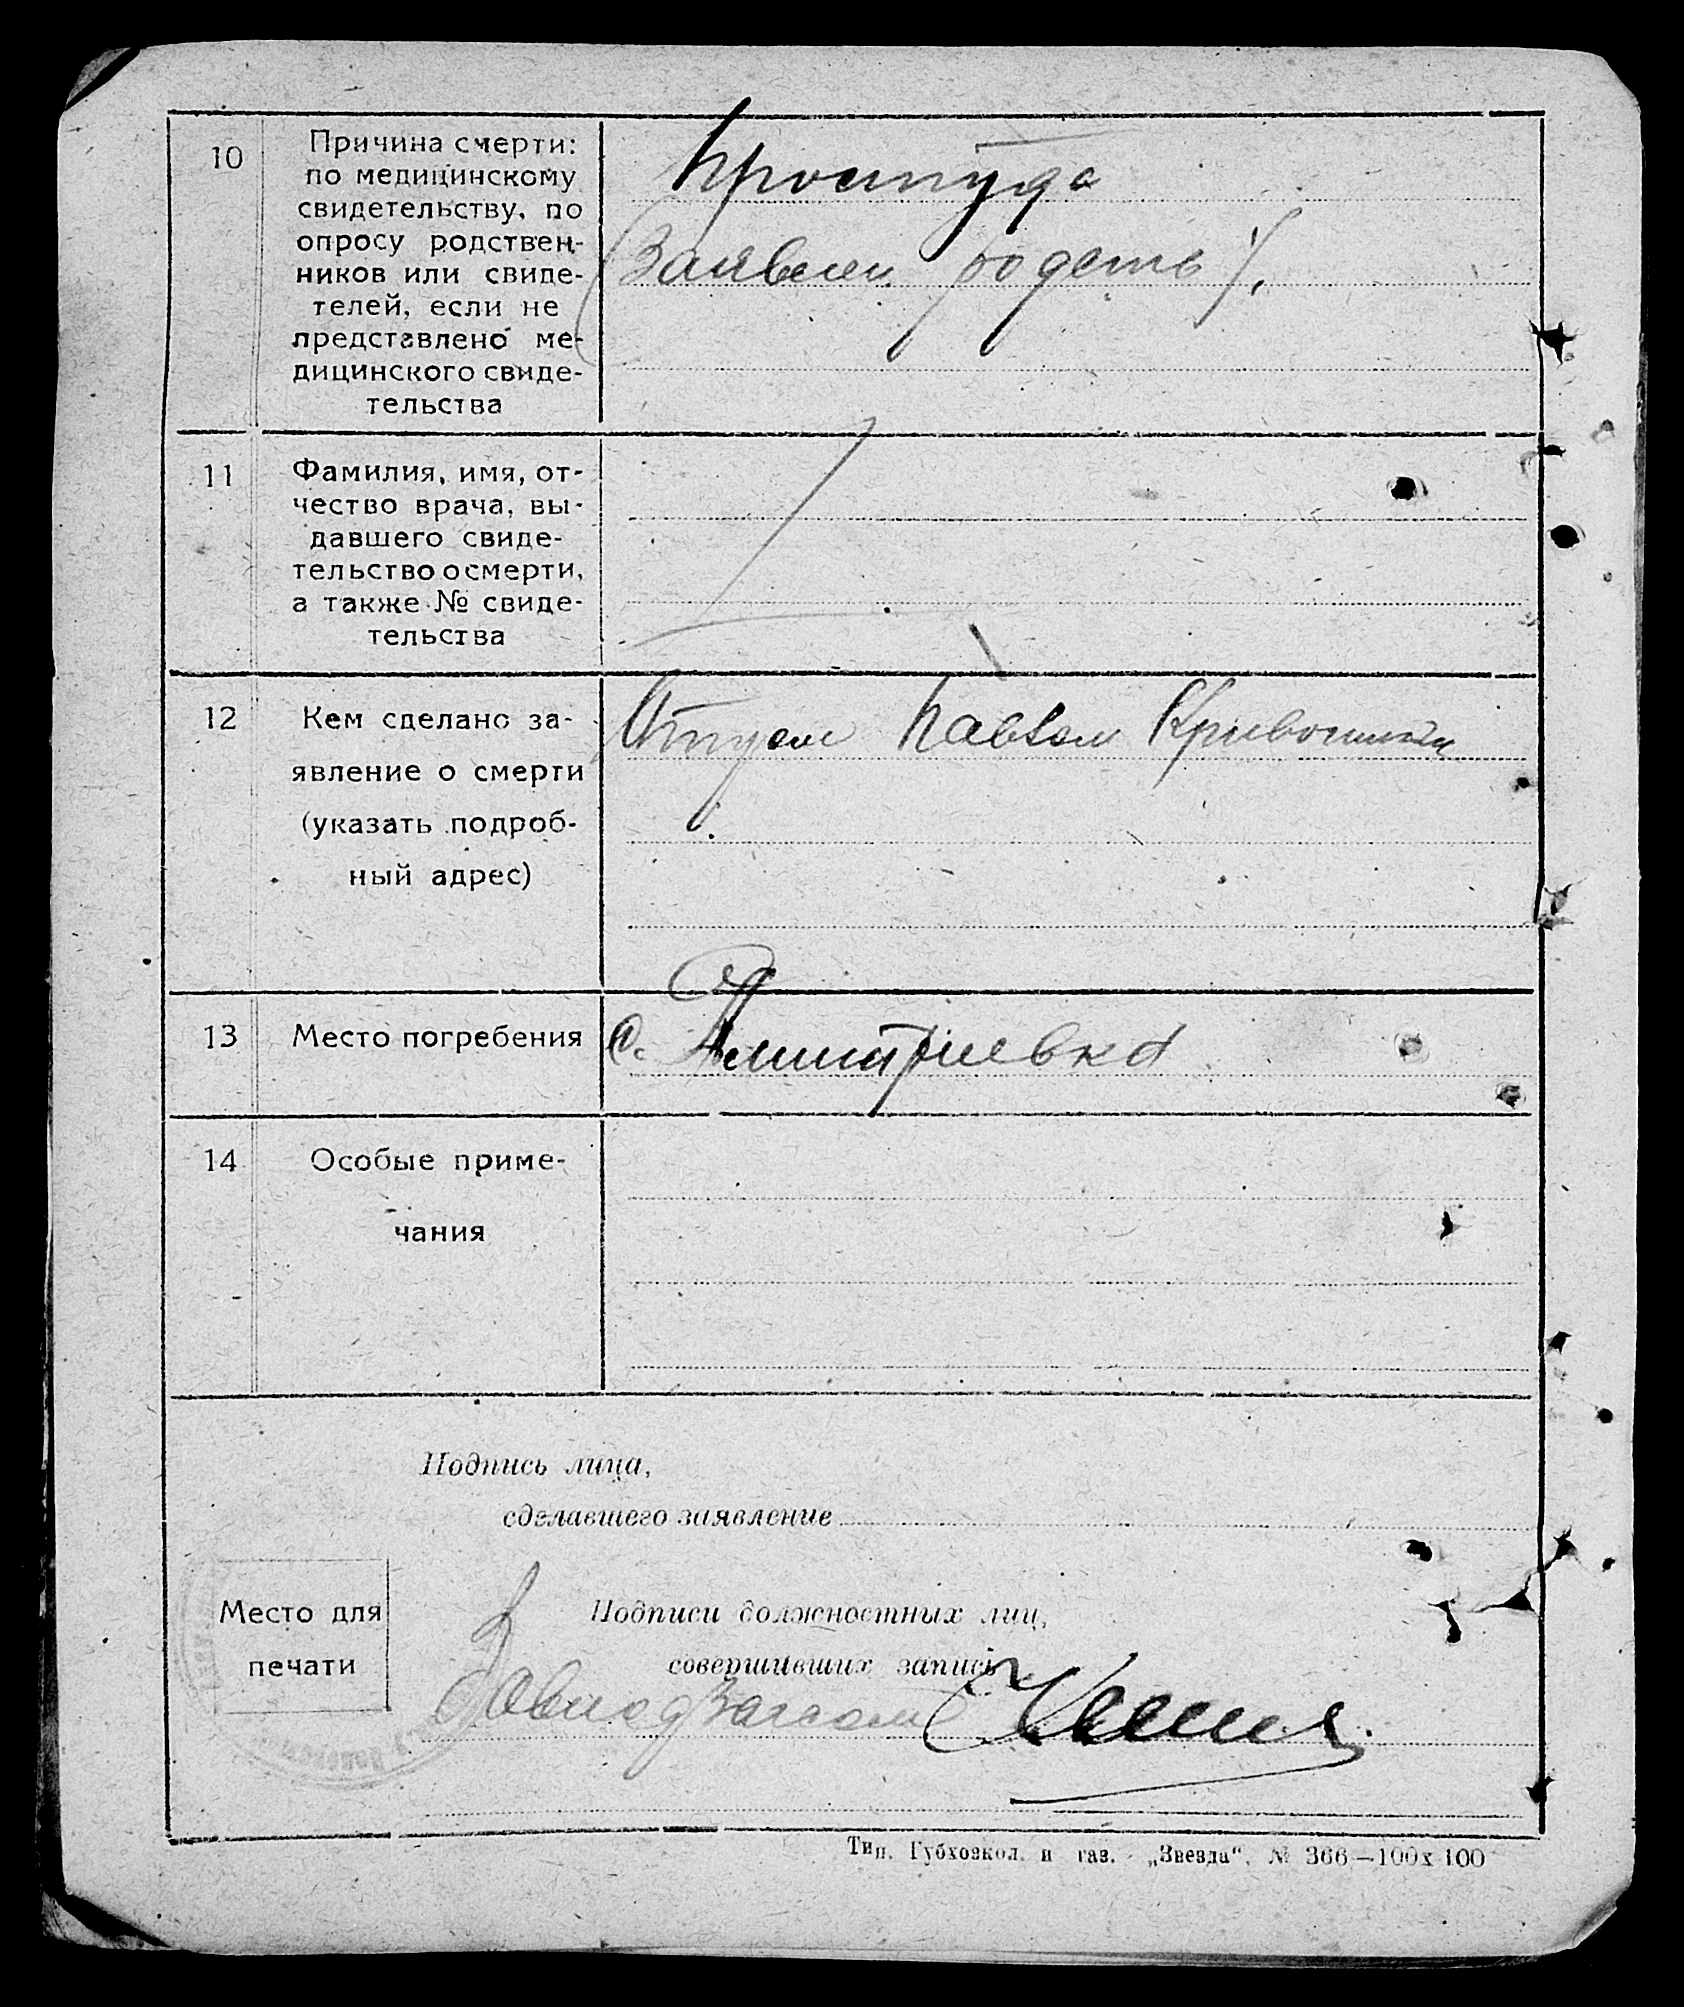 10
Причина смерти:
по медицинскому
свидетельству, по
опросу родствен-
ников или свиде-
телей, если не
представлено ме-
дицинского свиде-
тельства
Простуда
(Заявлен родств).
11
Фамилия, имя, от-
чество врача, вы-
давшего свиде-
тельство о смерти,
а также № свиде-
тельства
12
Кем сделано за-
явление о смерти
(указать подроб-
ный адрес)
Отцем Павлом
13
Место погребения
с. Дмитриевка
14
Особые приме-
чания
Подпись лица,
сделавшего заявление
Место для
печати
Подписи должностных лиц,
совершивших запись
Тип. Губхозкол. и газ. „Звезда“, № 366—100х100